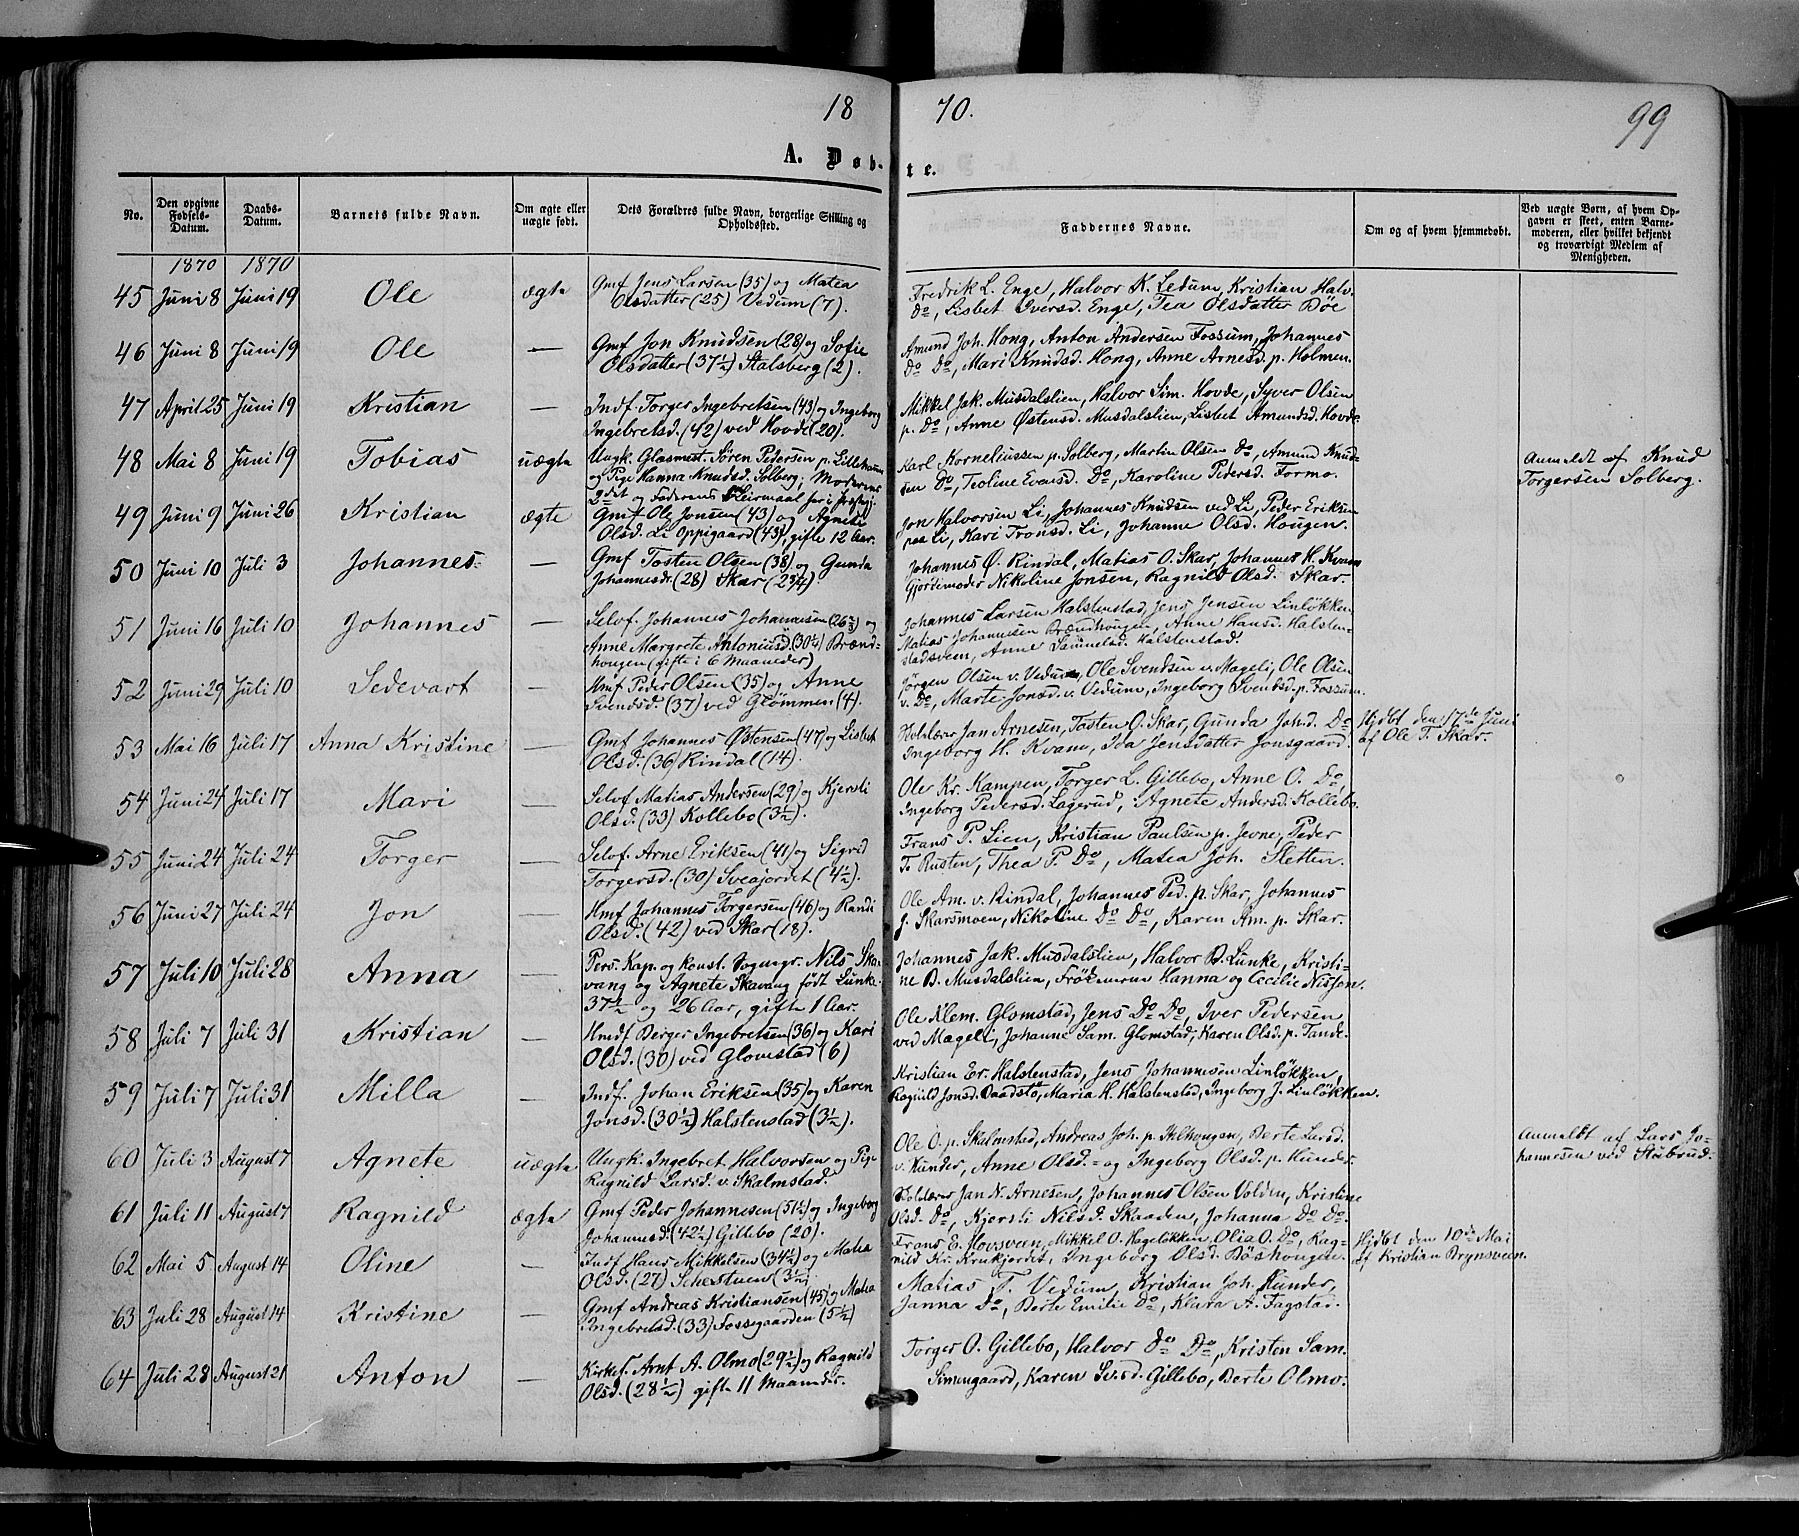 18 70.
99
A. Døbte.
No.
Den opgivne Fødsels-Datum.
Daabs-Datum.
Barnets fulde Navn.
Om ægte eller uægte født.
Dets Forældres fulde Navn, borgerlige Stilling og Opholdssted.
Faddernes Navne.
Om og af hvem hjemmedøbt.
Ved uægte Børn, af hvem Opgaven er skeet, enten Barnemoderen, eller hvilket bekjendt og troværdigt Medlem af Menigheden.
1870 1870
45 Juni 8 Juni 19 Ole ægte Gmf Jens Larsen (35) og Matea
Olsdatter (25) Vedum (7).
Fredrik L. Enge, Halvor K. Ledum, Kristian Halv.
Do, Lisbet Iversd. Enge, Tea Olsdatter Böe
46 Juni 8 Juni 19 Ole — Gmf Jon Knudsen (28) og Sofie
Olsdatter (37½) Stalsberg (2).
Amund Joh. Hong, Anton Andersen Fossum, Johannes
Do Do, Mari Knudsd. Hong, Anne Arnesd. p. Holmen.
47 April 25 Juni 19 Kristian — Indf. Torger Ingebretsen (43) og Ingeborg
Ingebretsd. (42) ved Hovde (20).
Mikkel Jak. Musdalslien, Halvor Sim. Hovde, Syver Olsen
p. Do, Anne Østensd. Musdalslien, Lisbet Amundsd. Hovde
48 Mai 8 Juni 19 Tobias uægte Ungk. Glasmest. Sören Pedersen p. Lillehamm
og Pige Hanna Knudsd. Solberg; Moderens
2det og Faderens Leirmaal
Karl Korneliussen p. Solberg, Martin Olsen Do, Amund Knud-
sen Do, Teoline Evensd. Do, Karoline Pedersd. Formo.
Anmeldt af Knud
Torgersen Solberg.
49 Juni 9 Juni 26 Kristian ægte Gmf Ole Jonsen (43) og Agnete
Olsd. Li Oppigaard (43), gifte 12 Aar.
Jon Halvorsen Li, Johannes Knudsen ved Li, Peder Eriksen
paa Li, Kari Tronsd. Li, Johanne Olsd. Hougen.
50 Juni 10 Juli 3 Johannes — Gmf Tosten Olsen (38) og Gunda
Johannesdr. (28) Skar (2¾)
Johannes Ø. Rindal, Matias O. Skar, Johannes H. Kvam
Gjortemoder Nikoline Jonsen, Ragnild Olsd. Skar.
51 Juni 16 Juli 10 Johannes — Selof. Johannes Johannesen (26⅔) og
Anne Margrete Antoniusd. (30¼) Brænd-
hougen (gifte i 6 Maaneder)
Johannes Larsen Halstenstad, Jens Jensen Linløkken
Matias Johannesen Brændhougen, Anne Hansd. Halsten-
stadsveen, Anne Samuelsd. Halstenstad.
52 Juni 29 Juli 10 Sedevart — Hmf Peder Olsen (35) og Anne
Svendsd. (37) ved Glommen (4).
Jørgen Olsen v. Vedum, Ole Svendsen v. Mageli, Ole Olsen
v. Do, Marte Jonsd. v. Vedum, Ingeborg Svendsd. p. Fossum.
53 Mai 16 Juli 17 Anna Kristine — Gmf Johannes Østensen (47) og Lisbet
Olsd. (36) Rindal (14).
Holdærer Jan Arnesen, Tosten O. Skar, Gunda Joh.d. Do
Ingeborg H. Kvam, Ida Jensdatter Jonsgaard.
Hjdbt den 17de Juni
af Ole T. Skar.
54 Juni 24 Juli 17 Mari — Selof. Matias Andersen (29) og Kjersti
Olsd. (33) Kollebo (3½).
Ole Kr. Kampen, Torger L. Gillebo, Anne O. Do,
Ingeborg Pedersd. Lagerud, Agnete Andersd. Kollebo.
55 Juni 24 Juli 24 Torger — Selof. Arne Eriksen (41) og Sigrid
Torgersd. (30) Sveajordet (4½).
Frans P. Lien, Kristian Paulsen p. Jevne, Peder
T. Rusten, Thea P. Do, Matea Joh. Sletten.
56 Juni 27 Juli 24 Jon — Hmf Johannes Torgersen (46) og Randi
Olsd. (42) ved Skar (18).
Ole Am. v. Rindal, Johannes Ped. p. Skar, Johannes
J. Skarsmoen, Nikoline Do Do, Karen Am. p. Skar.
57 Juli 10 Juli 28 Anna — Pers. Kap. og konst. Sognepr. Nils Ska-
vang og Agnete Skavang født Lunke
37½ og 26 Aar, gifte 1 Aar.
Johannes Jak. Musdalslien, Halvor B. Lunke, Kristi-
ne B. Musdalslien, Frøknerne Hanna og Cecilie Nisson.
58 Juli 7 Juli 31 Kristian — Hmdf Berger Ingebretsen (36) og Kari
Olsd. (30) ved Glovestad (6)
Ole Klem. Glomstad, Jens Do Do, Iver Pedersen
ved Mageli, Johanne Sam. Glomstad, Karen Olsd. p. Tande.
59 Juli 7 Juli 31 Milla — Indf. Johan Eriksen (35) og Karen
Jonsd. (30½) Halstenstad (3½).
Kristian Er. Halstenstad, Jens Johannesen Linløkken,
Ragnild Jonsd. Baadstø, Maria H. Halstenstad, Ingeborg J. Linløkken.
60 Juli 3 August 7 Agnete uægte Ungk. Ingebret Halvorsen og Pige
Ragnild Larsd. v. Skalmstad.
Ole O. p. Skalmstad, Andreas Joh. p. Hlhougen, Berte Larsd.
v. Kunder, Anne Olsd. og Ingeborg Olsd. p. Kunder.
Anmeldt af Lars Jo-
hannesen ved Stubrud.
61 Juli 11 August 7 Ragnild ægte Gmf Peder Johannesen (51½) og Ingeborg
Johannesd. (42½) Gillebo (20).
Holdærer Jan N. Arnesen, Johannes Olsen Volden, Kristine
Olsd. Do, Kjersti Nilsd. Skaaden, Johanna Do Do.
62 Mai 5 August 14 Oline — Indf Hans Mikkelsen (34½) og Matea
Olsd. (27) Schestuen (3½).
Frans E. Hovsveen, Mikkel O. Hagelikken, Olia O. Do, Rag-
nild Kr. Krukjordet, Ingeborg Olsd. Böshougen.
Hjdbt den 10de Mai
af Kristian Brynsveen.
63 Juli 28 August 14 Kristine — Gmf Andreas Kristiansen (45) og Matea
Ingebretsd. (33) Fossegaarden (5½)
Matias T. Vedum, Kristian Joh. Kunder,
Janna Do, Berte Emilie Do, Klara A. Fagstad.
64 Juli 28 August 21 Anton — Kirkes. Arnt A. Olmo (29½) og Ragnild
Olsd. (28½) gifte 11 Maaneder.
Torger O. Gillebo, Halvor Do Do, Kristen Sam.
Simengaard, Karen Iv.sd. Gillebo, Berte Olmo.